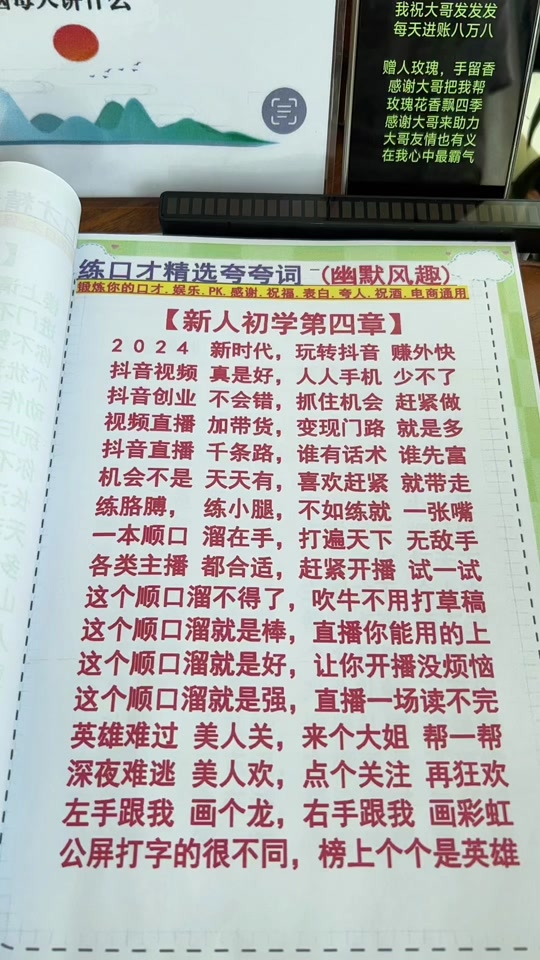 我祝大哥发发发
每天进账八万八
赠人玫瑰，手留香
感谢大哥把我帮
玫瑰花香飘四季
感谢大哥来助力
大哥友情也有义
在我心中最霸气
练口才精选夸夸词 （幽默风趣）
锻炼你的口才.娱乐.PK.感谢.祝福.表白.夸人.祝酒.电商通用
【新人初学第四章】
2024 新时代，玩转抖音 赚外快
抖音视频 真是好，人人手机 少不了
抖音创业 不会错，抓住机会 赶紧做
视频直播 加带货，变现门路 就是多
抖音直播 千条路，谁有话术 谁先富
机会不是 天天有，喜欢赶紧 就带走
练胳膊， 练小腿，不如练就 一张嘴
一本顺口 溜在手，打遍天下 无敌手
各类主播 都合适，赶紧开播 试一试
这个顺口溜不得了，吹牛不用打草稿
这个顺口溜就是棒，直播你能用的上
这个顺口溜就是好，让你开播没烦恼
这个顺口溜就是强，直播一场读不完
英雄难过 美人关，来个大姐 帮一帮
深夜难逃 美人欢，点个关注 再狂欢
左手跟我 画个龙，右手跟我 画彩虹
公屏打字的很不同，榜上个个是英雄